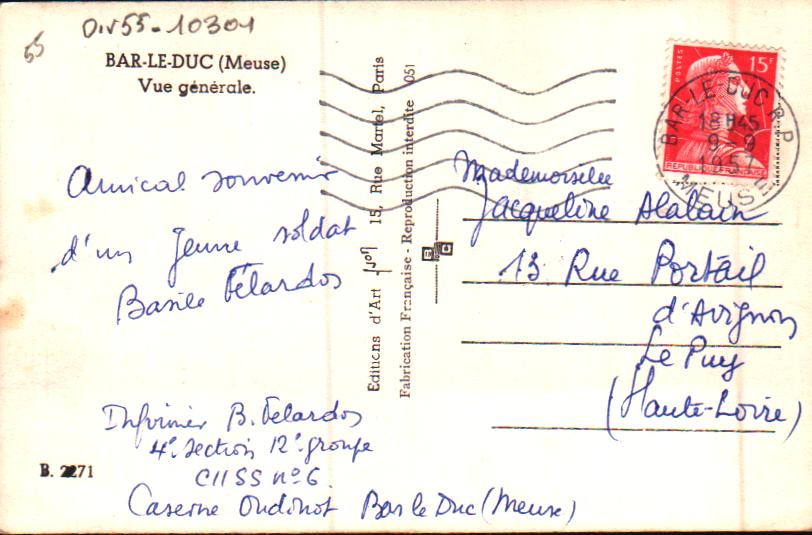 Div55-10301
55
BAR-LE-DUC (Meuse)
Vue générale.
Amical souvenir
d'un jeune soldat
Basile Félardos
Infirmier B. Félardos
4e Section 12e groupe
CIISS no 6
Caserne Oudinot Bar le Duc (Meuse)
B. 2271
Editions d'Art 15, Rue Martel, Paris
Fabrication Française - Reproduction interdite 051
POSTES
15F
REPUBLIQUE FRANÇAISE
BAR-LE-DUC R.P
18H45
9-9
1957
MEUSE
Mademoiselle
Jacqueline Alalain
13 Rue Portail
d'Avignon
Le Puy
(Haute-Loire)